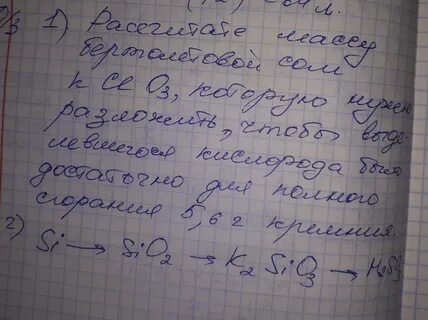 д/з 1) Рассчитайте массу
бертолетовой соли
KClO₃, которую нужно
разложить, чтобы выде-
лившегося кислорода было
достаточно для полного
сгорания 5,6 г кремния.
2) Si → SiO₂ → K₂SiO₃ → H₂SiO₃